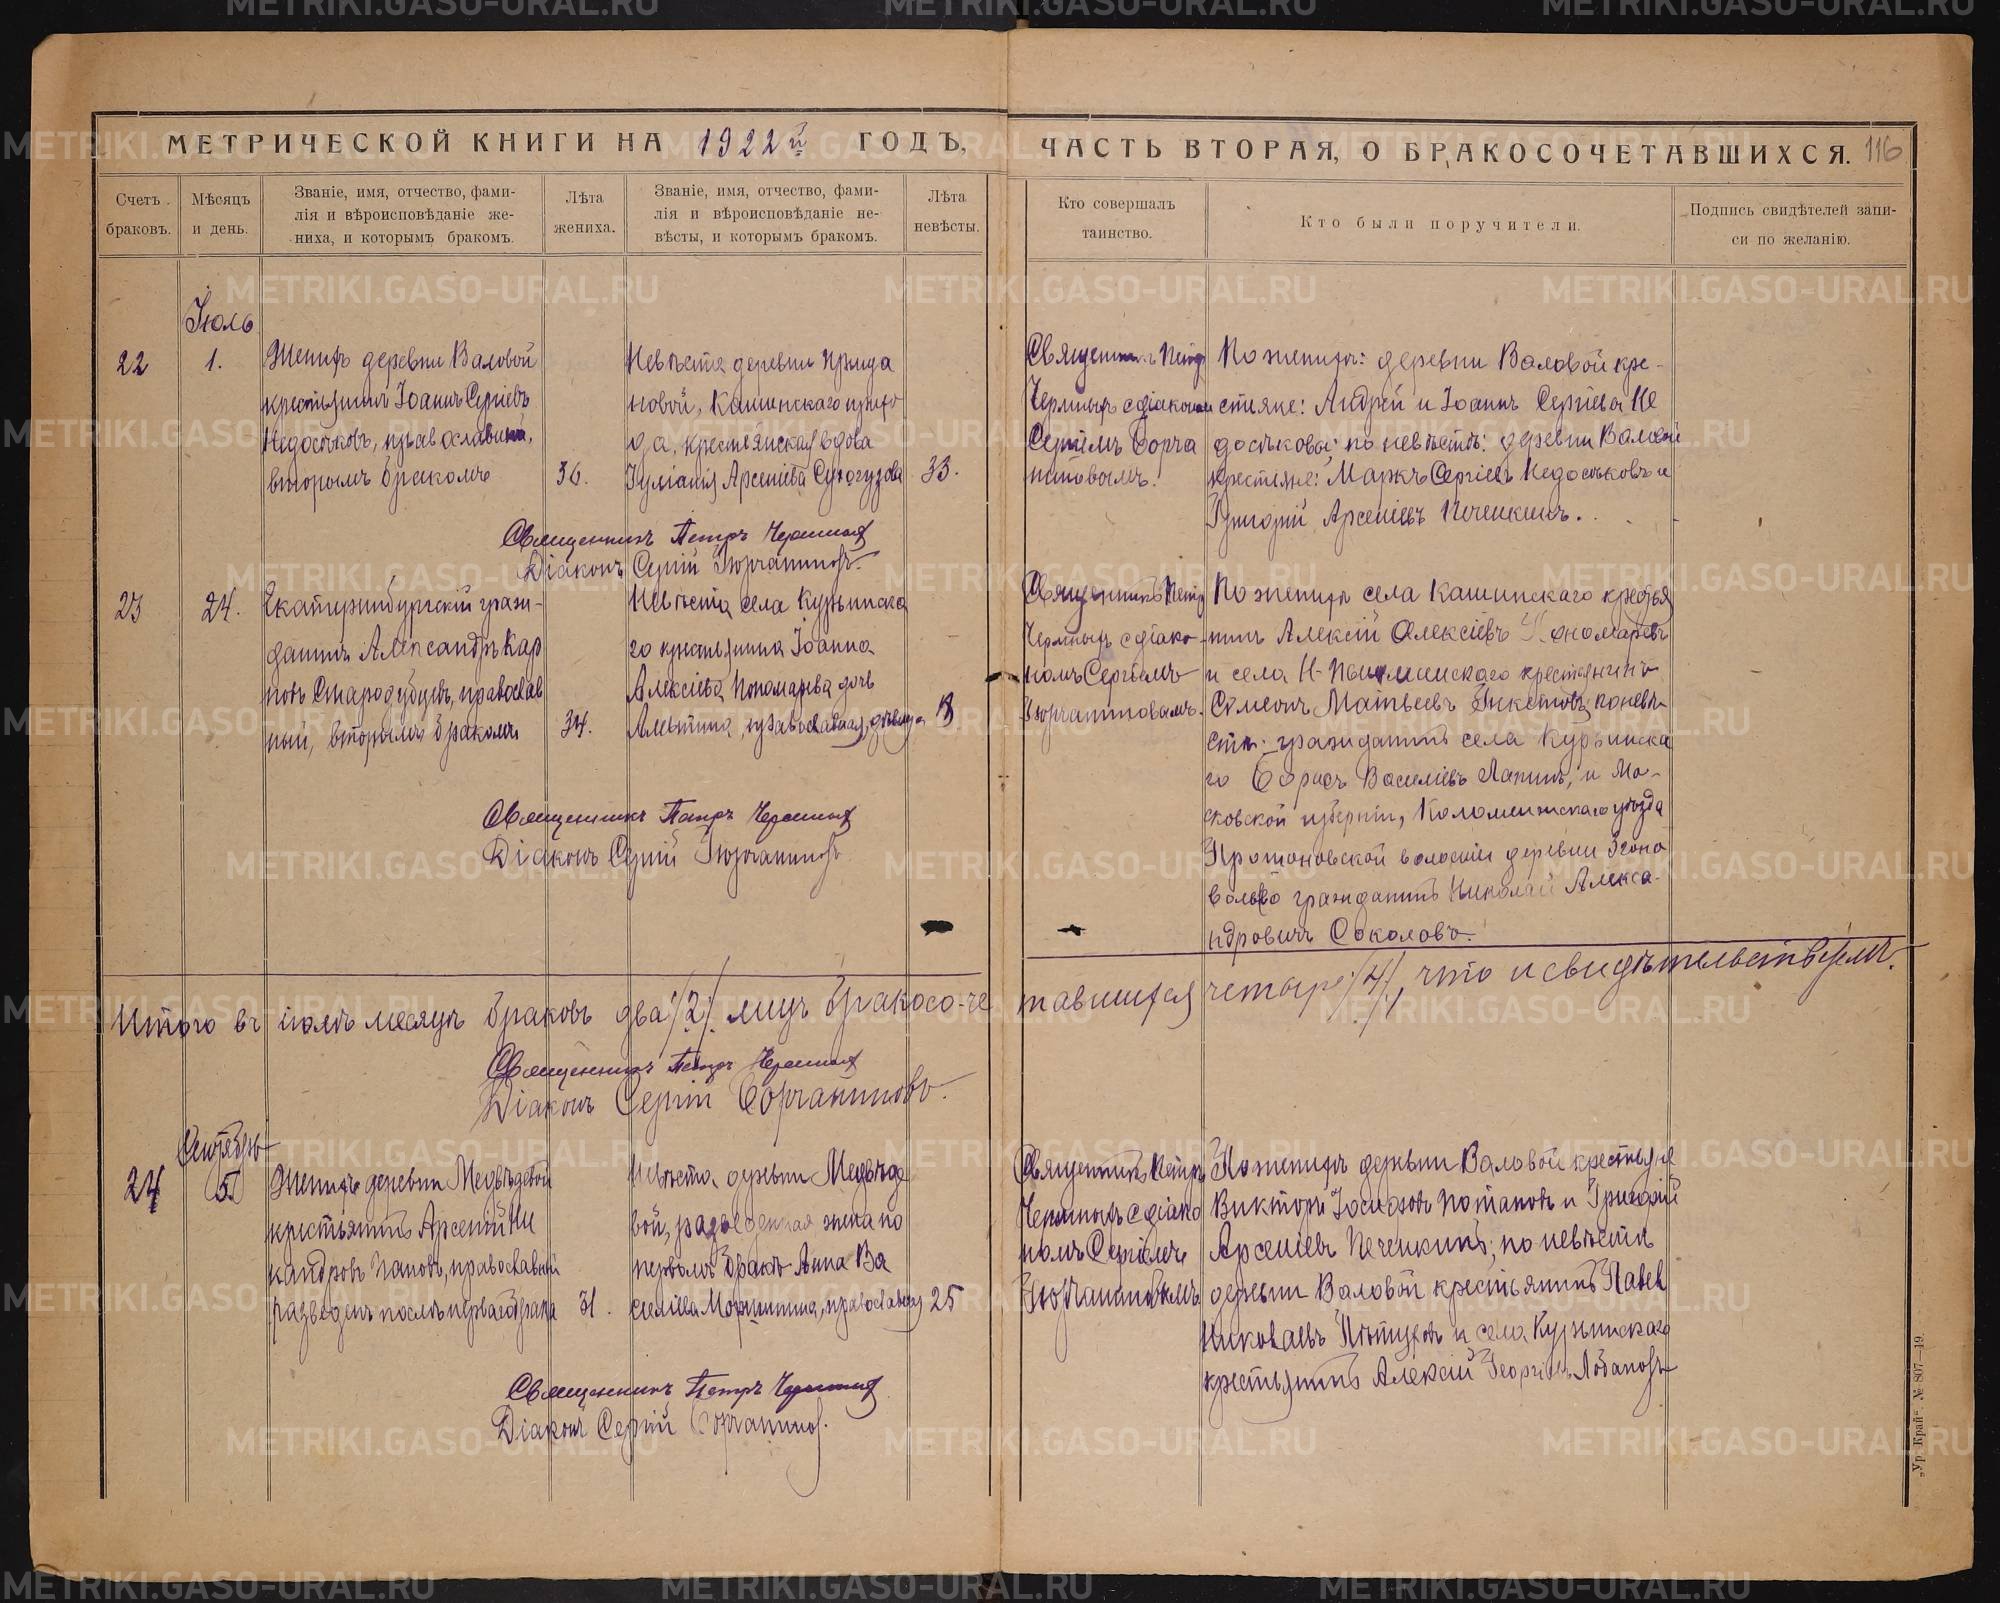 МЕТРИЧЕСКОЙ КНИГИ НА 1922й ГОДЪ,
ЧАСТЬ ВТОРАЯ, О БРАКОСОЧЕТАВШИХСЯ. 116
Счетъ браковъ.
Мѣсяцъ и день.
Званіе, имя, отчество, фами-
лія и вѣроисповѣданіе же-
ниха, и которымъ бракомъ.
Лѣта
жениха.
Званіе, имя, отчество, фами-
лія и вѣроисповѣданіе не-
вѣсты, и которымъ бракомъ.
Лѣта
невѣсты.
Кто совершалъ
таинство.
Кто были поручители.
Подпись свидѣтелей запи-
си по желанію.
Іюль
22
1.
Женихъ деревни Валовой
крестьянинъ Іоаннъ Сергіевъ
Недосѣковъ, православный,
вторымъ бракомъ
36.
Невѣста деревни
новой, Кашинскаго прихо
да, крестьянская вдова
Іуліанія Арсеніева Сухогузова
33.
Священникъ Петръ
Черныхъ съ діакономъ
Сергіемъ
По женихѣ: деревни Валовой кре-
стьяне: Андрей и Іоаннъ Сергіевы Не
досѣковы; по невѣстѣ: деревни Валовой
крестьяне: Маркъ Сергіевъ Недосѣковъ и
Григорій Арсеніевъ Печенкинъ.
Священникъ Петръ Черныхъ
Діаконъ Сергій
23
24.
Екатеринбургскій граж-
данинъ Александръ Кар
повъ Стародубцевъ, православ
ный, вторымъ бракомъ
34.
Невѣста села Курьинска
го крестьянина Іоанна
Алексіева Пономарева дочь
православная, дѣвица
18
Священникъ Петръ
Черныхъ съ діако-
номъ Сергіемъ
По женихѣ села Кашинскаго крестья
нинъ Алексій Алексіевъ Пономаревъ
и села Н-Пышминскаго крестьянинъ
Симеонъ Матѳеевъ по невѣ-
стѣ: гражданинъ села Курьинска
го Борисъ Василіевъ Лапинъ, и Мо-
сковской губерніи, Коломенскаго уѣзда
волости деревни
гражданинъ Николай Алекса-
ндровичъ Соколовъ.
Священникъ Петръ Черныхъ
Діаконъ Сергій
Итого въ іюлѣ месяцѣ браковъ два /2/. лицъ бракосо-че
тавшихся четыре /4/, что и свидѣтельствуемъ.
Священникъ Петръ Черныхъ
Діаконъ Сергій
Сентябрь
24
5.
Женихъ деревни Медвѣдевой
крестьянинъ Арсеній Ни
кандровъ Пановъ, православный
разведенъ послѣ перваго брака
31.
Невѣста деревни Медвѣде
вой, разведенная жена по
первомъ бракѣ Анна Ва
силіева православная
25
Священникъ Петръ
Черныхъ съ діако
номъ Сергіемъ
По женихѣ деревни Валовой крестьяне
Викторъ Іосифовъ Потаповъ и Григорій
Арсеніевъ Печенкинъ; по невѣстѣ
деревни Валовой крестьянинъ Павелъ
Николаевъ и села Курьинскаго
крестьянинъ Алексій Георгіевъ Лобановъ
Священникъ Петръ Черныхъ
Діаконъ Сергій
„Ур. Край“. № 807.—19.
METRIKI.GASO-URAL.RU